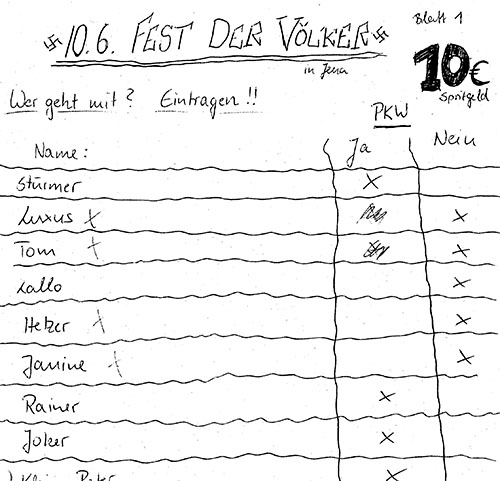 10.6. FEST DER VÖLKER
in Jena
Blatt 1
10€
Spritgeld
Wer geht mit? Eintragen!!
PKW
Name: Ja Nein
Stürmer X
Luxus X X
Tom X X
Lallo X
Hetzer X X
Janine X X
Rainer X
Joker X
Peter X